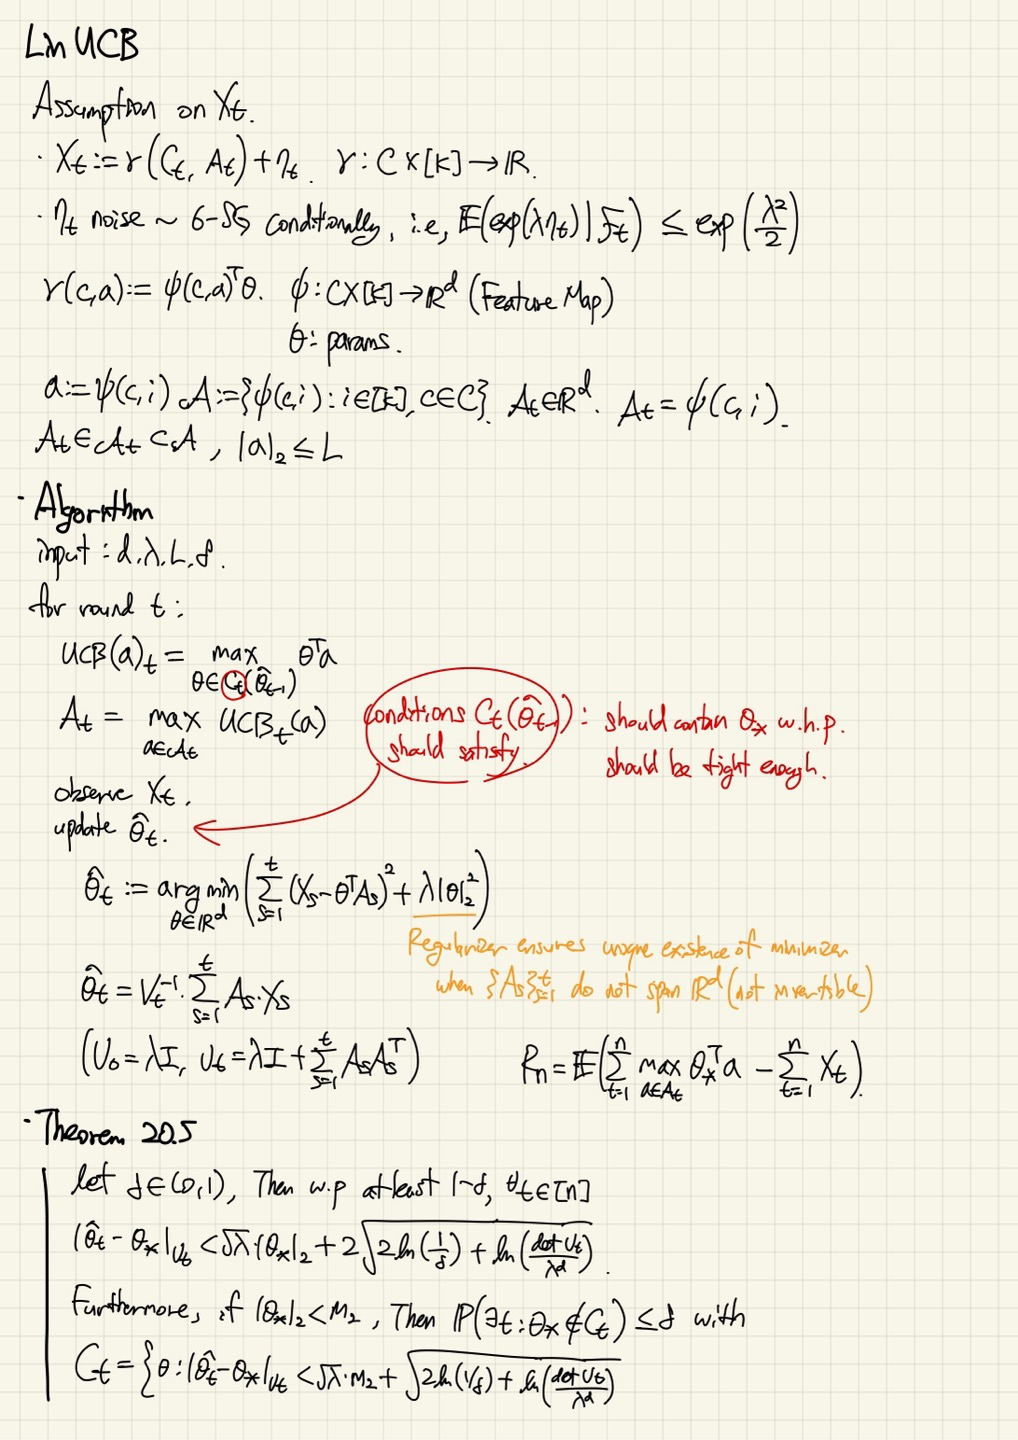 Lin UCB
Assumption on Xt.
· Xt := r(Ct, At) + ηt. r : C×[k] → ℝ.
· ηt noise ~ 6-SG conditionally, i.e, 𝔼(exp(ληt)|Ft) ≤ exp(λ²/2)
r(c,a) := ψ(c,a)ᵀθ. ψ : C×[k] → ℝᵈ (Feature Map)
θ : params.
a := ψ(c,i) A := {ψ(c,i) : i∈[k], c∈C}. At∈ℝᵈ. At = ψ(c,i).
At ∈ At ⊂ A, |a|₂ ≤ L
· Algorithm
input : d, λ, L, δ.
for round t :
UCB(a)t = max θ∈Ct(θ̂t-1) θᵀa
At = max a∈At UCBt(a)
conditions Ct(θ̂t-1) : should contain θ* w.h.p.
should satisfy. should be tight enough.
observe Xt.
update θ̂t.
θ̂t := argmin θ∈ℝᵈ (∑ s=1 t (Xs - θᵀAs)² + λ|θ|₂²)
Regularizer ensures unique existence of minimizer
when {As} s=1 t do not span ℝᵈ (not invertible)
θ̂t = Vt⁻¹ · ∑ s=1 t As·Xs
(V0 = λI, Vt = λI + ∑ s=1 t AsAsᵀ) Rn = 𝔼(∑ t=1 n max a∈At θ*ᵀa - ∑ t=1 n Xt).
· Theorem 20.5
let δ∈(0,1), Then w.p at least 1-δ, ∀t∈[n]
|θ̂t - θ*|Vt < √λ·|θ*|₂ + 2√(2ln(1/δ) + ln(det Vt/λᵈ)).
Furthermore, if |θ*|₂ < M₂, Then ℙ(∃t : θ* ∉ Ct) ≤ δ with
Ct = {θ : |θ̂t - θ*|Vt < √λ·M₂ + √(2ln(1/δ) + ln(det Vt/λᵈ))